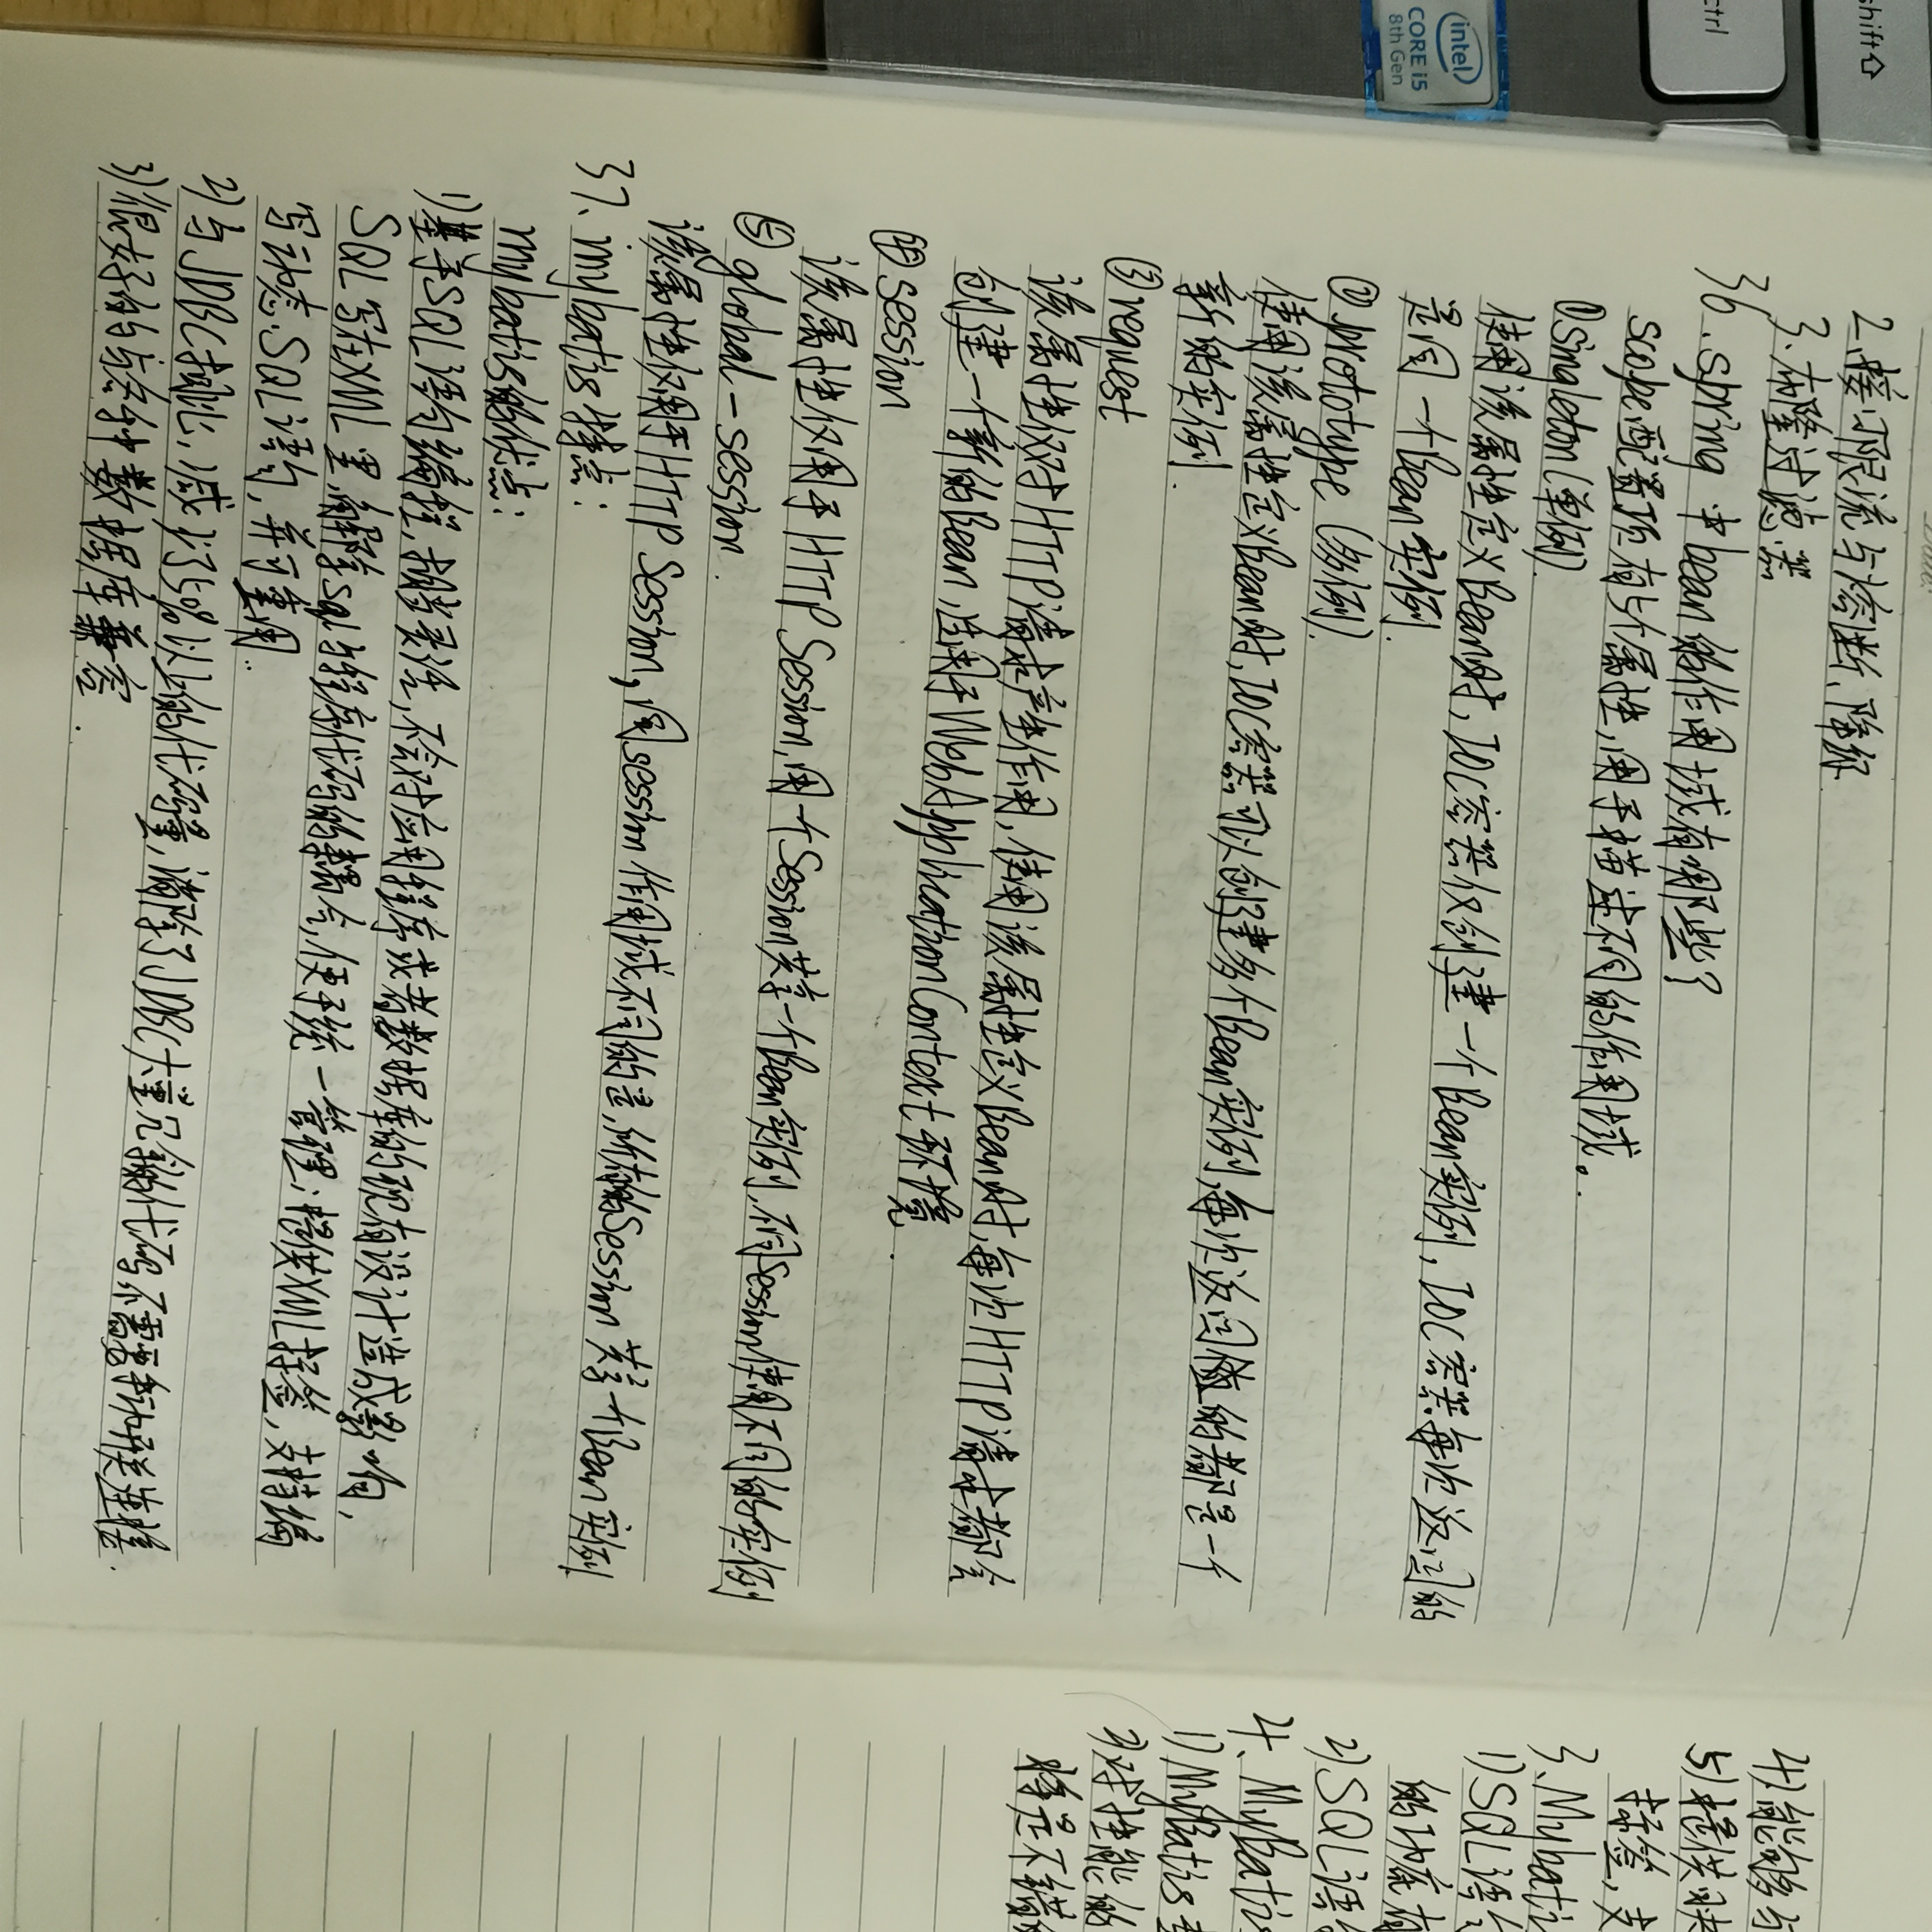 2、接口限流与熔断、降级
3.布隆过滤器
36、spring 中bean的作用域有哪些?
scope配置项有5个属性,用于描述不同的作用域。
①singleton(单例).
使用该属性定义Bean时,IOC容器仅创建一个Bean实例,IOC容器每次返回的
是同一个Bean实例.
②prototype (多例).
使用该属性定义Bean时,IOC容器可以创建多个Bean实例,每次返回的都是一个
新的实例.
③request
该属性仅对HTTP请求产生作用,使用该属性定义Bean时,每次HTTP请求都会
创建一个新的Bean,适用于WebApplicationContext环境.
④session
该属性仅用于HTTP Session,同一个Session共享一个Bean实例,不同Session使用不同的实例
⑤global-session.
该属性仅用于HTTP Session,同session作用域不同的是,所有的Session共享一个Bean实例
37、mybatis特点:
mybatis的优点:
1)基于SQL语句编程,相当灵活,不会对应用程序或者数据库的现有设计造成影响,
SQL写在XML里,解除sql与程序代码的耦合,便于统一管理;提供XML标签,支持编
写动态SQL语句,并可重用.
2)与JDBC相比,减少了50%以上的代码量,消除了JDBC大量冗余代码,不需要手动开关连接.
3)很好的与各种数据库兼容.
4)能够与
5)提供映
标签,支
3、Mybati
1)SQL语
的功底有
2)SQL语
4、MyBatis
1)MyBatis
2)对性能的
将是不错的
intel
CORE i5
8th Gen
ctrl
shift⇧